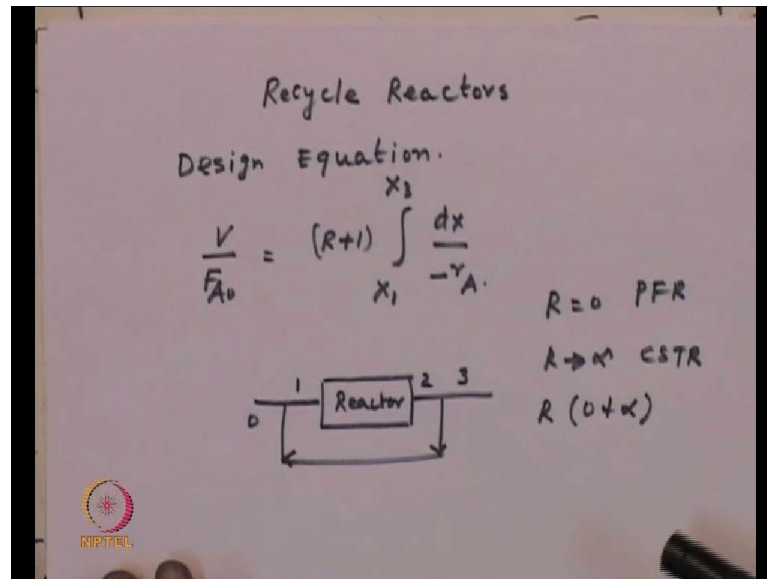 Recycle Reactors
Design Equation.
X3
V/FA0 = (R+1) ∫ dx/-rA.
X1
R = 0 PFR
R → ∝ CSTR
R (0 + ∝)
0 1 Reactor 2 3
NPTEL